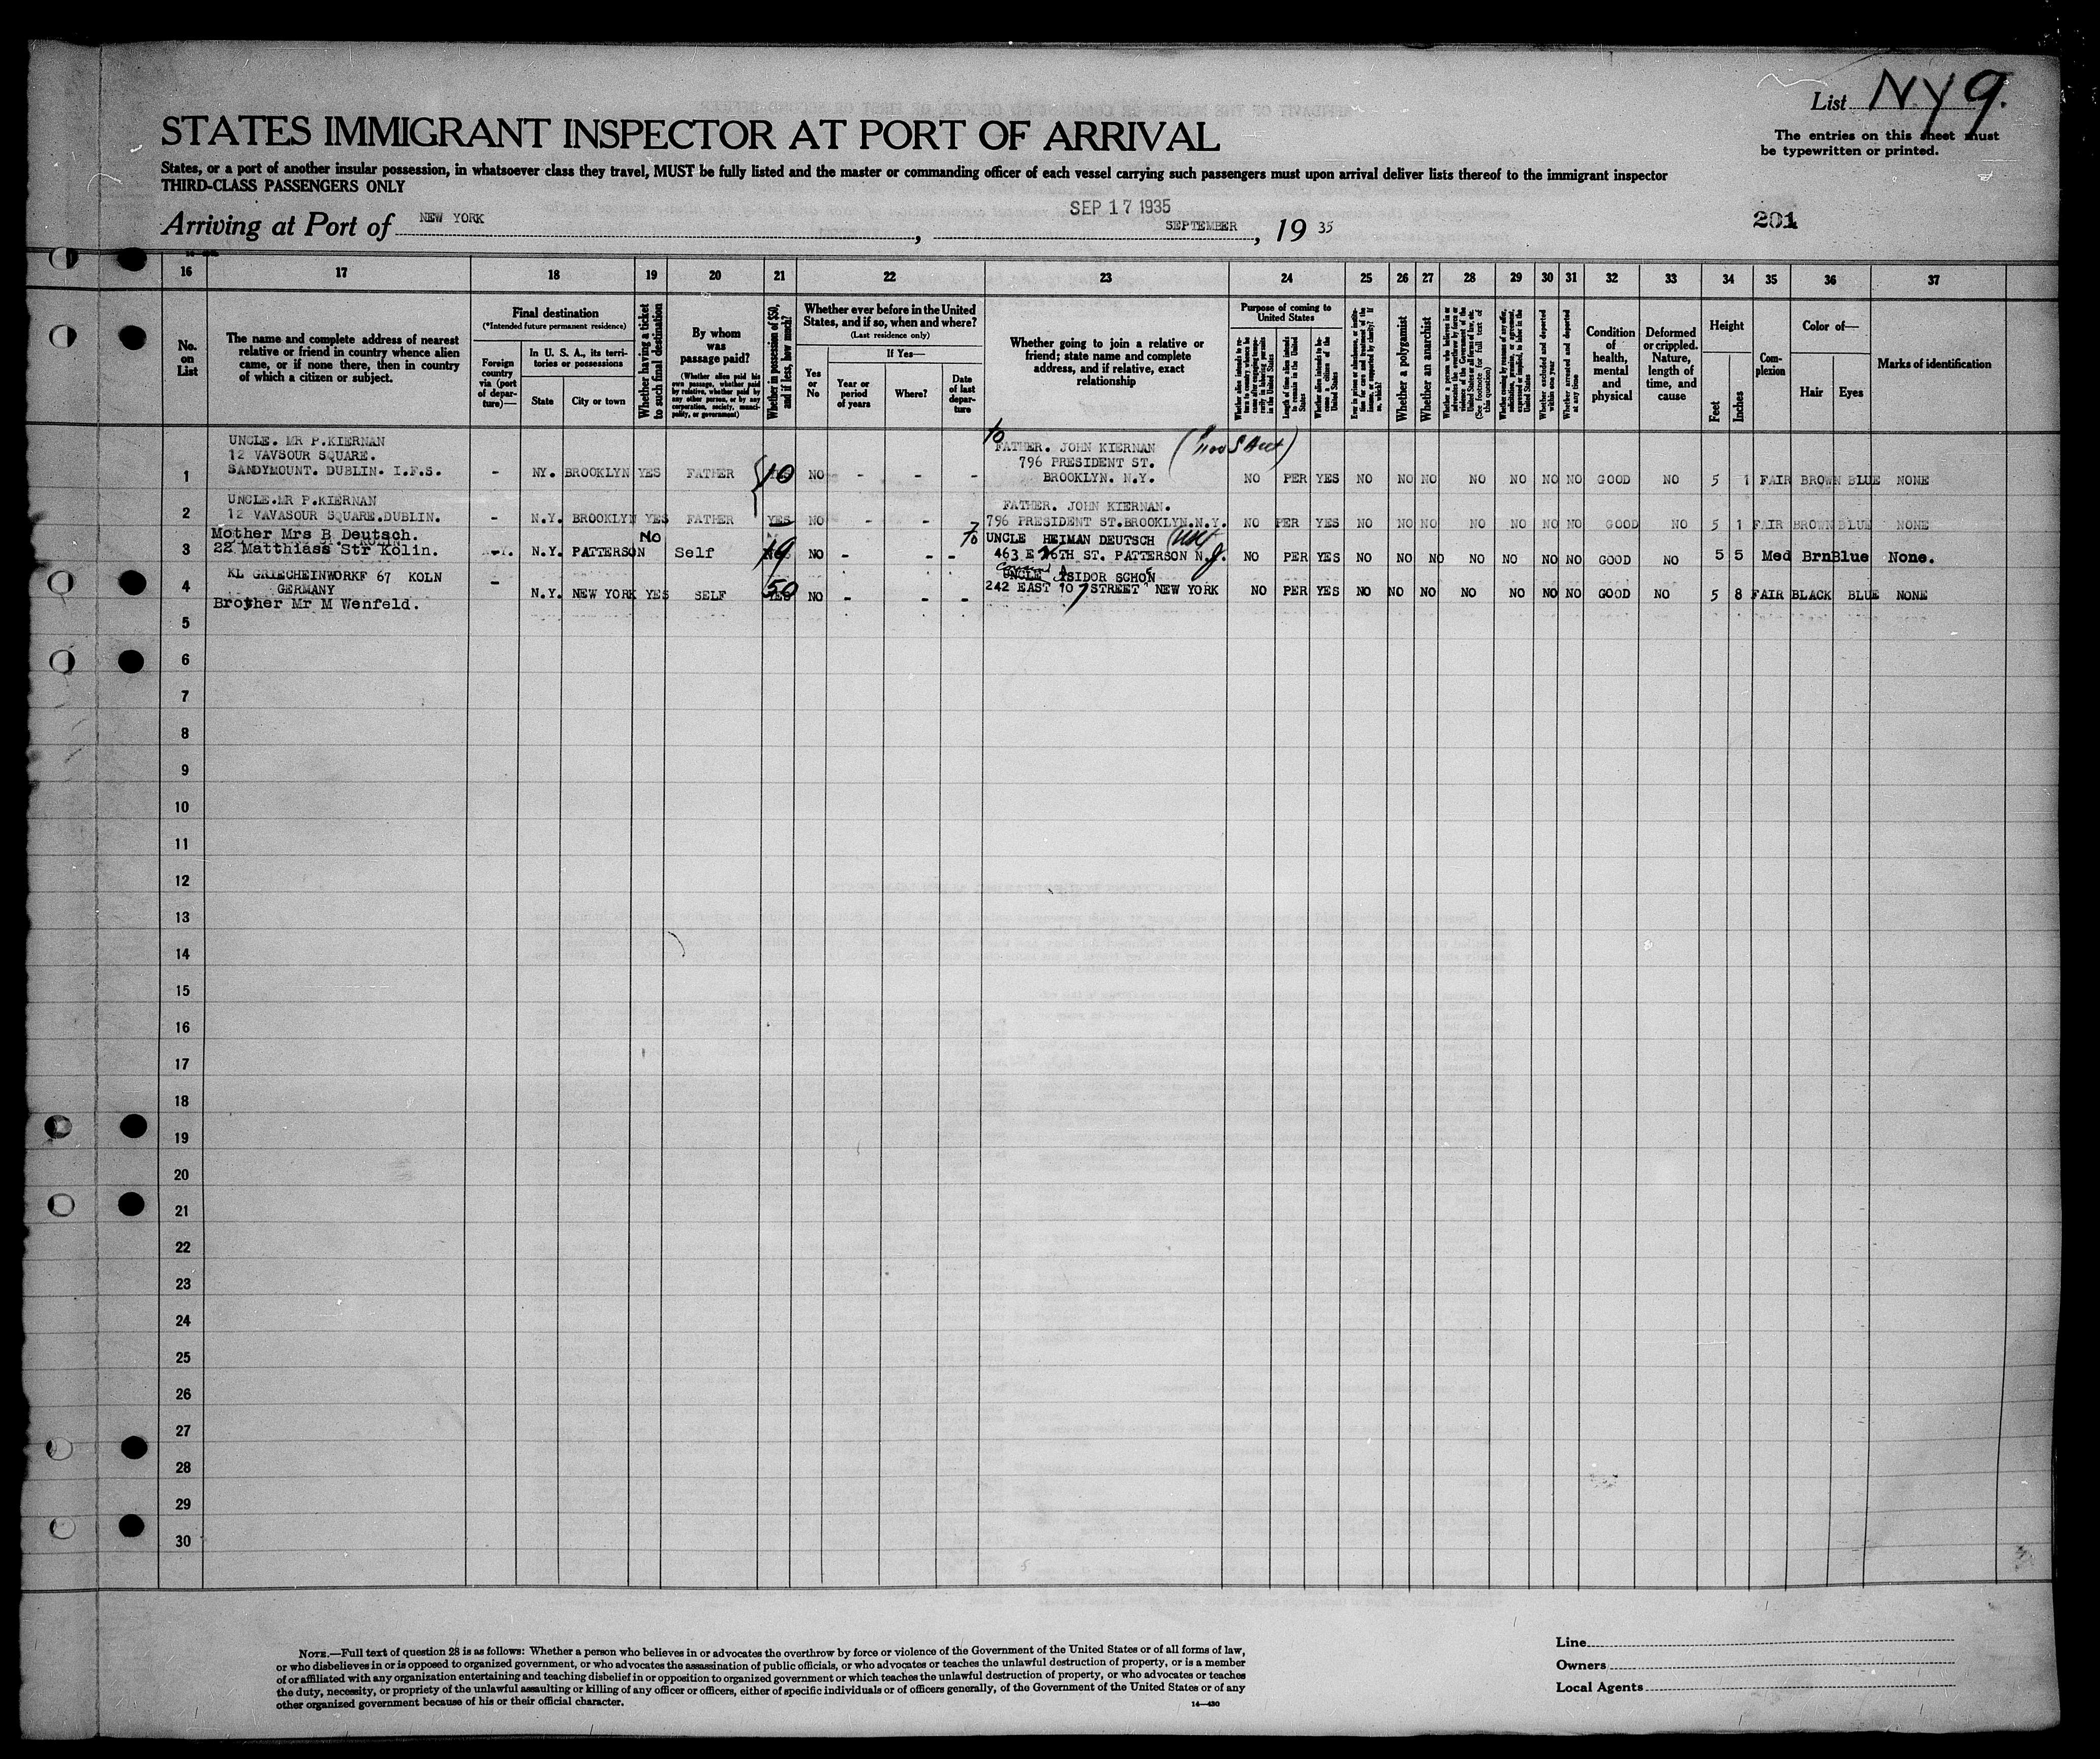 List N.Y 9.
STATES IMMIGRANT INSPECTOR AT PORT OF ARRIVAL
The entries on this sheet must
be typewritten or printed.
States, or a port of another insular possession, in whatsoever class they travel, MUST be fully listed and the master or commanding officer of each vessel carrying such passengers must upon arrival deliver lists thereof to the immigrant inspector
THIRD-CLASS PASSENGERS ONLY
SEP 17 1935
Arriving at Port of NEW YORK, SEPTEMBER, 19 35
201
16 17 18 19 20 21 22 23 24 25 26 27 28 29 30 31 32 33 34 35 36 37
No. on List
The name and complete address of nearest
relative or friend in country whence alien
came, or if none there, then in country
of which a citizen or subject.
Final destination
(*Intended future permanent residence)
Foreign country via (port of departure)—
In U. S. A., its territories or possessions
State
City or town
Whether having a ticket to such final destination
By whom was passage paid?
(Whether alien paid his own passage, whether paid by relative, whether paid by any other person, or by any corporation, society, municipality, or government)
Whether in possession of $50, and if less, how much?
Whether ever before in the United
States, and if so, when and where?
(Last residence only)
Yes or No
If Yes—
Year or period of years
Where?
Date of last departure
Whether going to join a relative or
friend; state name and complete
address, and if relative, exact
relationship
Purpose of coming to United States
Whether alien intends to return to country whence he came after engaging temporarily in laboring pursuits in the United States
Length of time alien intends to remain in the United States
Whether alien intends to become a citizen of the United States
Ever in prison or almshouse, or institution for care and treatment of the insane, or supported by charity? If so, which?
Whether a polygamist
Whether an anarchist
Whether a person who believes in or advocates the overthrow by force or violence of the Government of the United States or all forms of law, etc. (See footnote for full text of this question)
Whether coming by reason of any offer, solicitation, promise, or agreement, expressed or implied, to labor in the United States
Whether excluded and deported within one year
Whether arrested and deported at any time
Condition of health, mental and physical
Deformed or crippled. Nature, length of time, and cause
Height
Feet
Inches
Complexion
Color of—
Hair
Eyes
Marks of identification
UNCLE. MR P.KIERNAN
12 VAVSOUR SQUARE.
1 SANDYMOUNT. DUBLIN. I.F.S. - NY. BROOKLYN YES FATHER 10 NO - - -
to FATHER. JOHN KIERNAN
796 PRESIDENT ST.
BROOKLYN. N.Y. NO PER YES NO NO NO NO NO NO NO GOOD NO 5 1 FAIR BROWN BLUE NONE
UNCLE.MR P.KIERNAN
2 12 VAVASOUR SQUARE.DUBLIN. - N.Y. BROOKLYN YES FATHER YES NO - - -
FATHER. JOHN KIERNAN.
796 PRESIDENT ST.BROOKLYN.N.Y. NO PER YES NO NO NO NO NO NO NO GOOD NO 5 1 FAIR BROWN BLUE NONE
Mother Mrs B Deutsch.
3 22 Matthiass Str Kolin. N.Y. PATTERSON No Self 19 NO - - -
To UNCLE HEIMAN DEUTSCH
463 E 26TH ST. PATTERSON N.J. NO PER YES NO NO NO NO NO NO NO GOOD NO 5 5 Med Brn Blue None.
KL GRIECHEINWORKF 67 KOLN
4 GERMANY - N.Y. NEW YORK YES SELF 50 YES NO - - -
Brother Mr M Wenfeld.
UNCLE ISIDOR SCHON
242 EAST 107 STREET NEW YORK NO PER YES NO NO NO NO NO NO NO GOOD NO 5 8 FAIR BLACK BLUE NONE
5
6
7
8
9
10
11
12
13
14
15
16
17
18
19
20
21
22
23
24
25
26
27
28
29
30
NOTE.—Full text of question 28 is as follows: Whether a person who believes in or advocates the overthrow by force or violence of the Government of the United States or of all forms of law,
or who disbelieves in or is opposed to organized government, or who advocates the assassination of public officials, or who advocates or teaches the unlawful destruction of property, or is a member
of or affiliated with any organization entertaining and teaching disbelief in or opposition to organized government or which teaches the unlawful destruction of property, or who advocates or teaches
the duty, necessity, or propriety of the unlawful assaulting or killing of any officer or officers, either of specific individuals or of officers generally, of the Government of the United States or of any
other organized government because of his or their official character.
14—430
Line
Owners
Local Agents